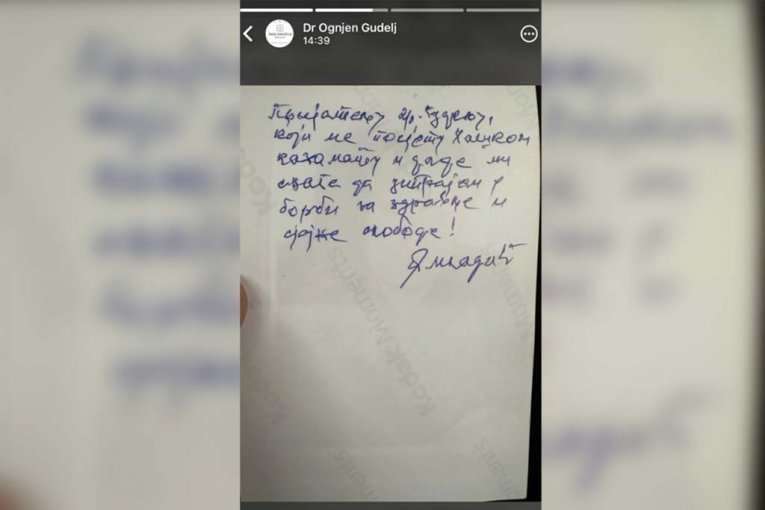 Dr Ognjen Gudelj
14:39
Пријатељу др. Гудељу,
који ме посјети у Хашком
казамату и даде ми
снага да истрајем у
борби за здравље и
моје слободе!
Р Младић
Kodak Moments